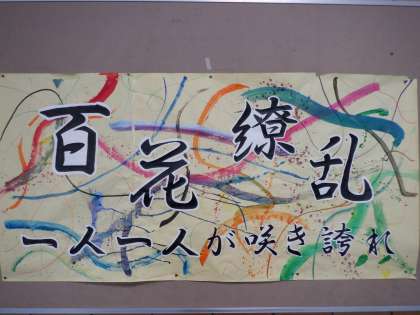 百花繚乱
一人一人が咲き誇れ